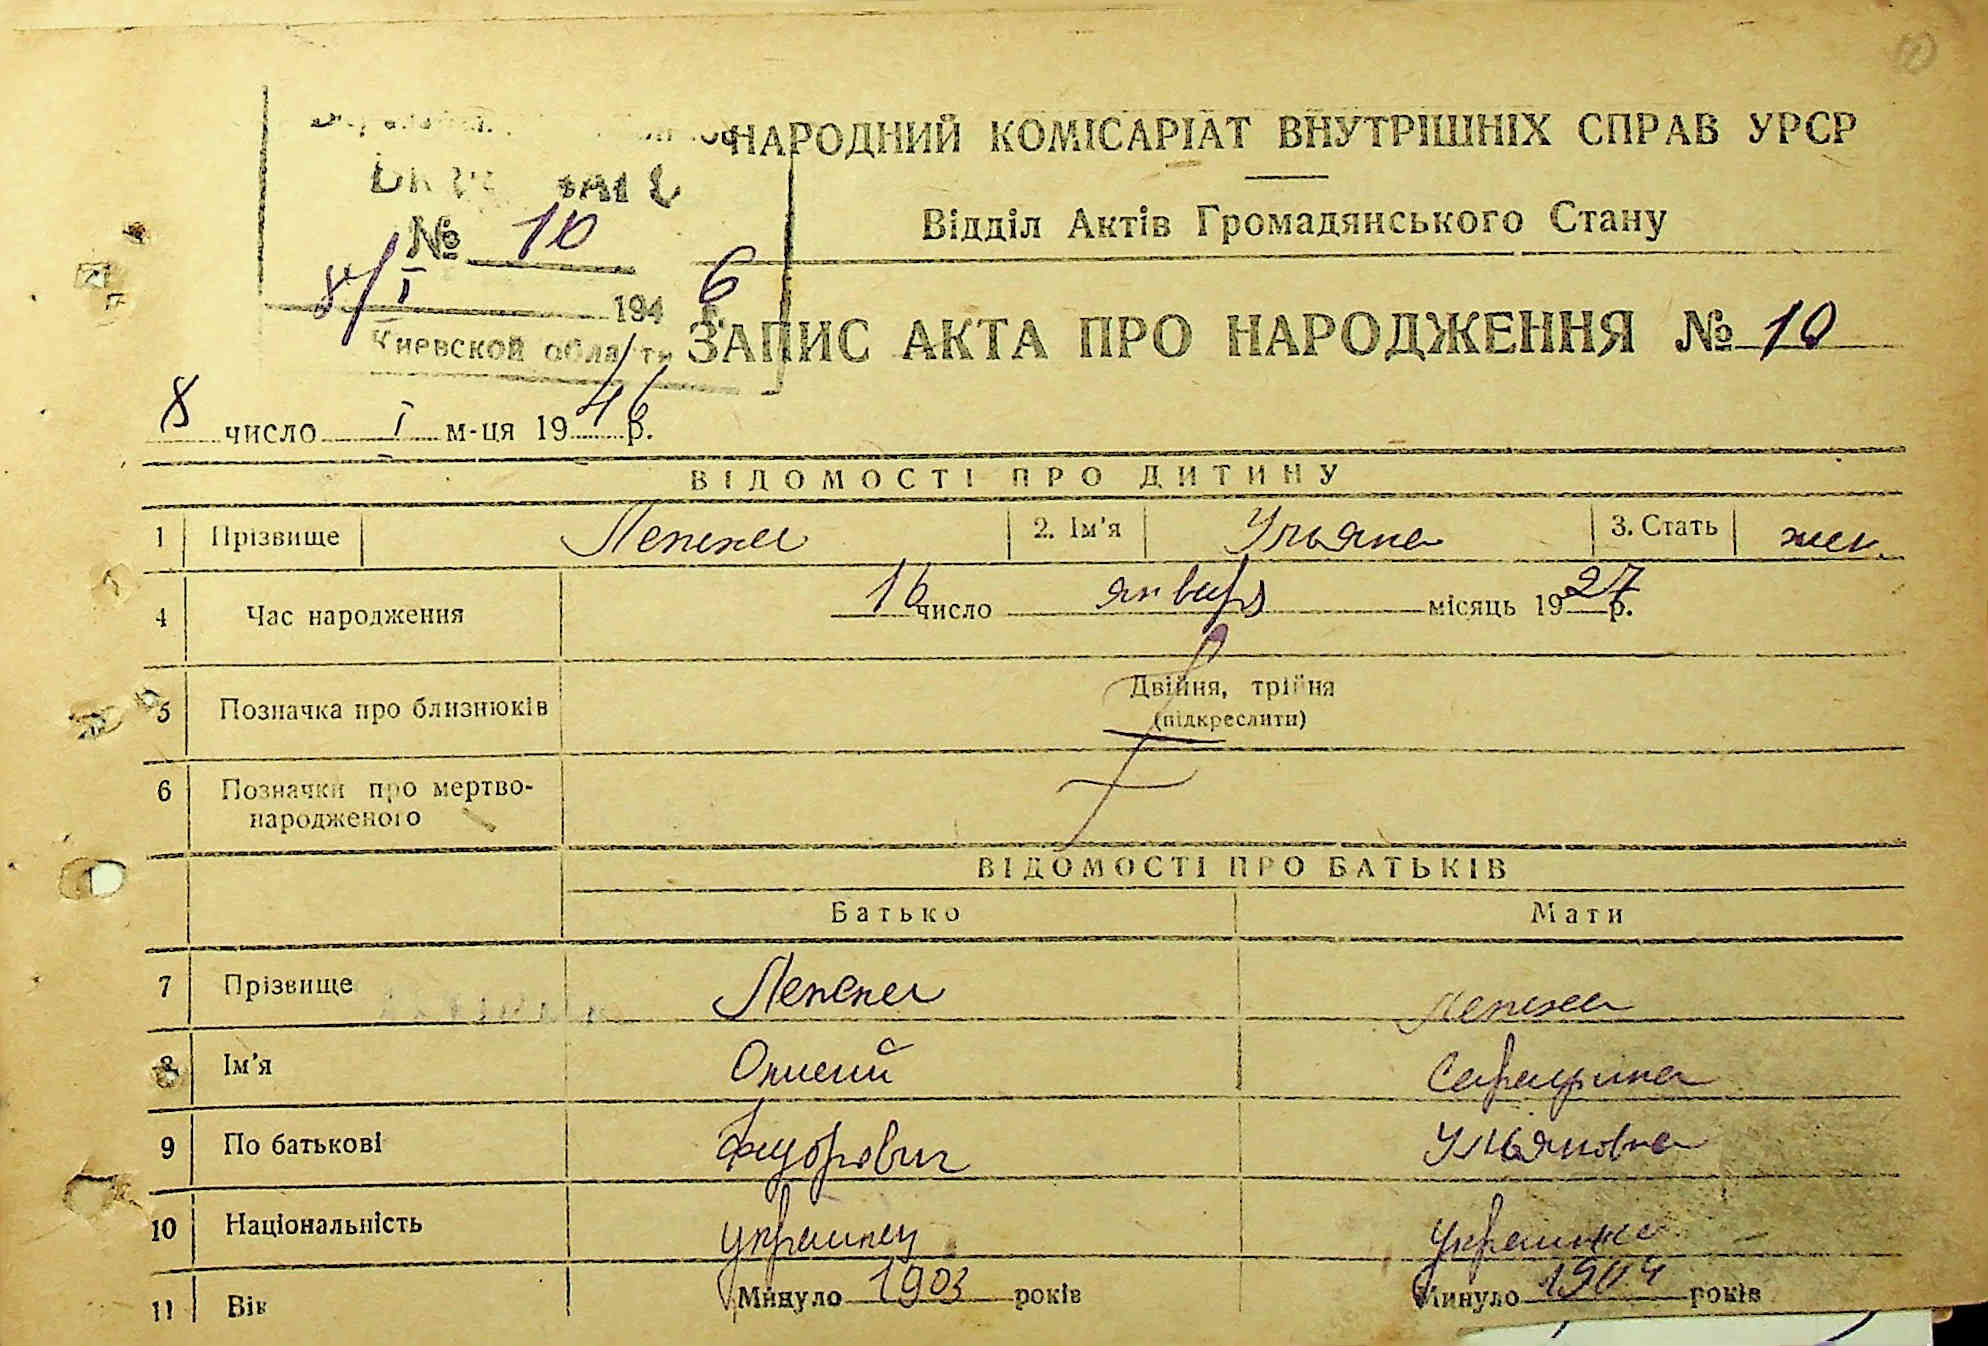 НАРОДНИЙ КОМІСАРІАТ ВНУТРІШНІХ СПРАВ УРСР
Відділ Актів Громадянського Стану
№ 10
8/I 1946
Киевской области
ЗАПИС АКТА ПРО НАРОДЖЕННЯ № 10
8 число I м-ця 1946 р.
ВІДОМОСТІ ПРО ДИТИНУ
1 Прізвище Лепеха 2. Ім'я Ульяна 3. Стать жен.
4 Час народження 16 число январ місяць 1927 р.
5 Позначка про близнюків Двійня, трійня
(підкреслити)
6 Позначки про мертво-
народженого
ВІДОМОСТІ ПРО БАТЬКІВ
Батько Мати
7 Прізвище Лепеха Лепеха
8 Ім'я
9 По батькові Ульяновна
10 Національність украинец украинка
11 Вік Минуло 1903 років Минуло 1904 років